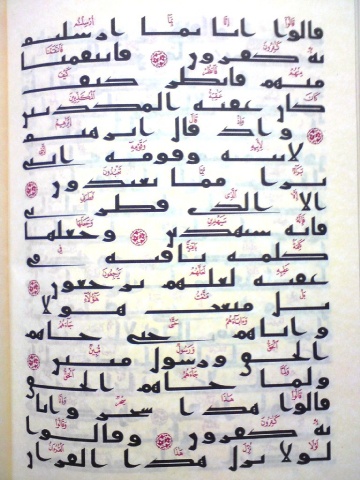 قالوا انا بما ارسلتم
به كفرون فانتقمنا
منهم فانظر كيف
كان عقبة المكذبين
واذ قال ابرهيم
لابيه وقومه انني
برا مما تعبدون
الا الذي فطرني
فانه سيهدين وجعلها
كلمة باقية في
عقبه لعلهم يرجعون
بل متعت هولا
واباهم حتى جاهم
الحق ورسول مبين
ولما جاهم الحق
قالوا هذا سحر وانا
به كفرون وقالوا
لولا نزل هذا القران